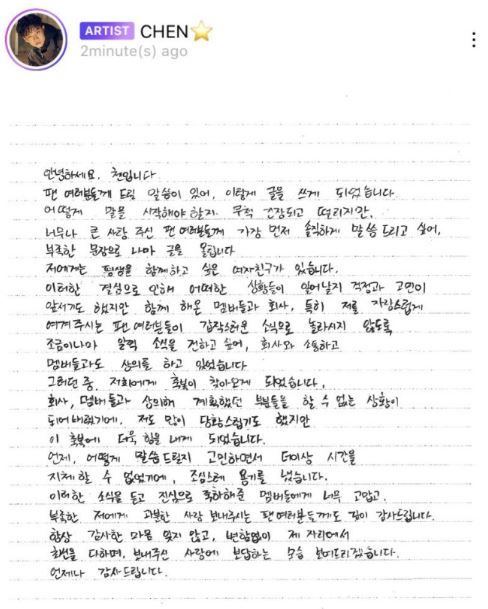 ARTIST CHEN
2minute(s) ago
안녕하세요. 첸입니다
팬 여러분들께 드릴 말씀이 있어, 이렇게 글을 쓰게 되었습니다
어떻게 말을 시작해야 할지 무척 긴장되고 떨리지만,
너무나 큰 사랑 주신 팬 여러분들께 가장 먼저 솔직하게 말씀 드리고 싶어,
부족한 문장으로 나마 글을 올립니다
저에게는 평생을 함께하고 싶은 여자친구가 있습니다.
이러한 결심으로 인해 어떠한 상황들이 일어날지 걱정과 고민이
앞서기도 했지만 함께 해온 멤버들과 회사, 특히 저를 자랑스럽게
여겨 주시는 팬 여러분들이 갑작스러운 소식으로 놀라시지 않도록
조금이나마 일찍 소식을 전하고 싶어, 회사와 소통하고
멤버들과도 상의를 하고 있었습니다
그러던 중, 저희에게 축복이 찾아오게 되었습니다.
회사, 멤버들과 상의해 계획했던 부분들을 할 수 없는 상황이
되어버렸기에, 저도 많이 당황스럽기도 했지만
이 축복에 더욱 힘을 내게 되었습니다.
언제, 어떻게 말씀 드릴지 고민하면서 더이상 시간을
지체 할 수 없었기에, 조심스레 용기를 냈습니다.
이러한 소식을 듣고 진심으로 축하해준 멤버들에게 너무 고맙고,
부족한 저에게 과분한 사랑 보내주시는 팬 여러분들께도 깊이 감사드립니다.
항상 감사한 마음 잊지 않고, 변함없이 제 자리에서
최선을 다하며, 보내주신 사랑에 보답하는 모습 보여드리겠습니다.
언제나 감사드립니다.